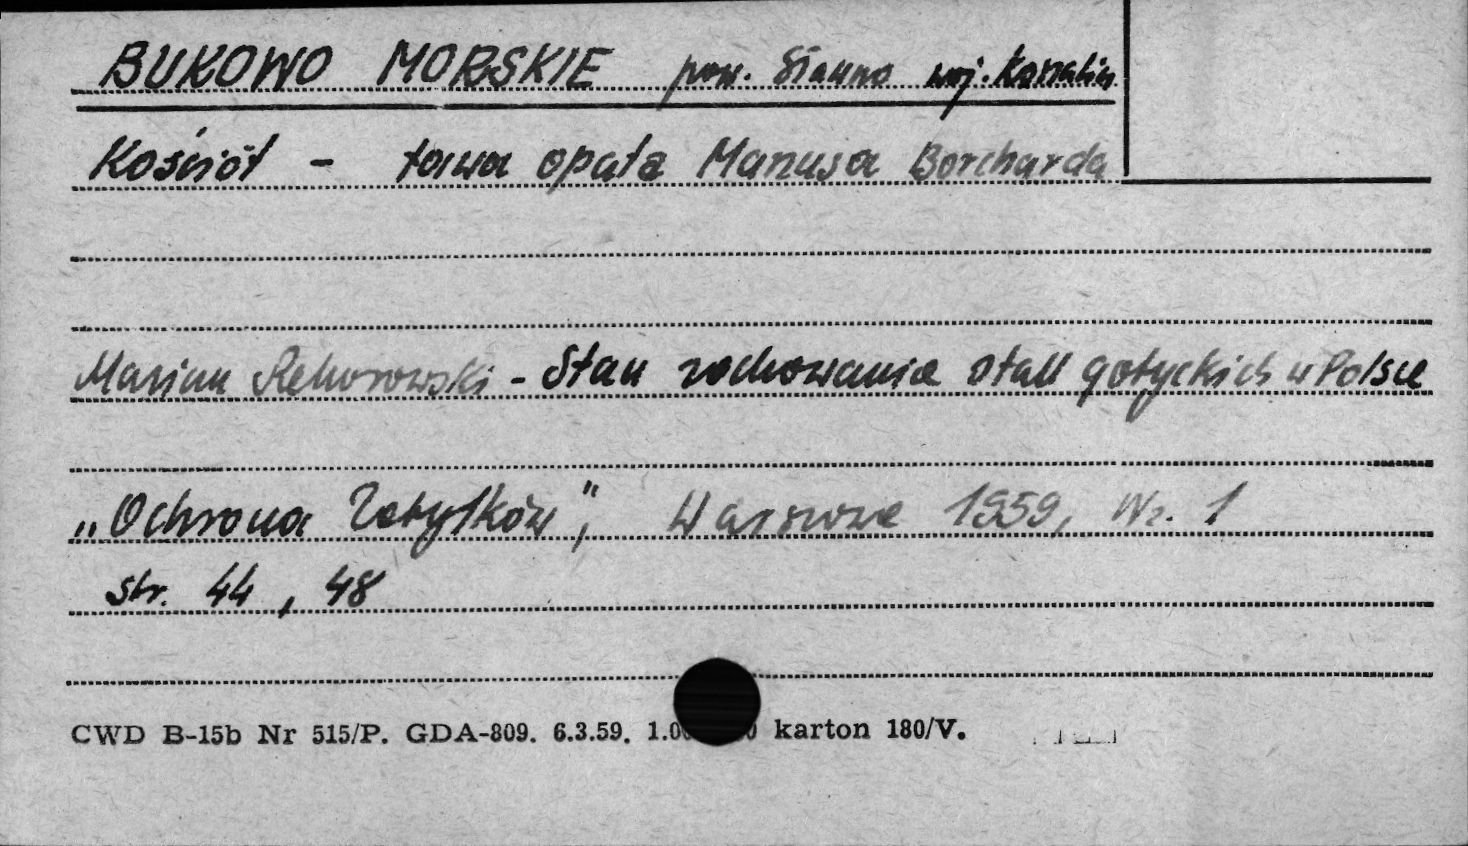 BUKOWO MORSKIE pow. Sławno woj. Koszalin
Kościół - ława opata Manusa Borcharda
Marian Rehorowski - Stan zachowania stall gotyckich w Polsce
„Ochrona Zabytków", Warszawa 1959, Nr. 1
str. 44, 48
CWD B-15b Nr 515/P. GDA-809. 6.3.59. karton 180/V.